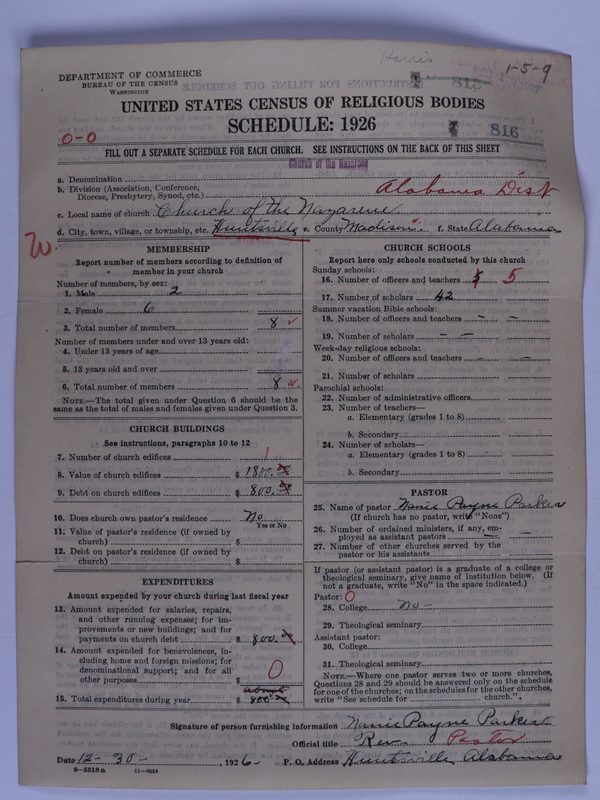 Harris
1-5-9
DEPARTMENT OF COMMERCE
BUREAU OF THE CENSUS
WASHINGTON
813
UNITED STATES CENSUS OF RELIGIOUS BODIES
SCHEDULE: 1926
0-0
816
FILL OUT A SEPARATE SCHEDULE FOR EACH CHURCH. SEE INSTRUCTIONS ON THE BACK OF THIS SHEET
Church of the Nazarene
a. Denomination
b. Division (Association, Conference, Diocese, Presbytery, Synod, etc.) Alabama Dist
c. Local name of church Church of the Nazarene
d. City, town, village, or township, etc. Huntsville e. County Madison f. State Alabama
W
MEMBERSHIP
Report number of members according to definition of
member in your church
Number of members, by sex:
1. Male 2
2. Female 6
3. Total number of members 8
Number of members under and over 13 years old:
4. Under 13 years of age
5. 13 years old and over
6. Total number of members 8
NOTE.—The total given under Question 6 should be the
same as the total of males and females given under Question 3.
CHURCH BUILDINGS
See instructions, paragraphs 10 to 12
7. Number of church edifices 1
8. Value of church edifices $ 1800.00
9. Debt on church edifices $ 800.00
10. Does church own pastor's residence No
Yes or No
11. Value of pastor's residence (if owned by
church) $
12. Debt on pastor's residence (if owned by
church) $
EXPENDITURES
Amount expended by your church during last fiscal year
13. Amount expended for salaries, repairs,
and other running expenses; for im-
provements or new buildings; and for
payments on church debt $ 800.00
14. Amount expended for benevolences, in-
cluding home and foreign missions; for
denominational support; and for all
other purposes $ 0
about
15. Total expenditures during year $ 800.00
CHURCH SCHOOLS
Report here only schools conducted by this church
Sunday schools:
16. Number of officers and teachers 5
17. Number of scholars 42
Summer vacation Bible schools:
18. Number of officers and teachers - -
19. Number of scholars - -
Week-day religious schools:
20. Number of officers and teachers - -
21. Number of scholars
Parochial schools:
22. Number of administrative officers
23. Number of teachers—
a. Elementary (grades 1 to 8)
b. Secondary
24. Number of scholars—
a. Elementary (grades 1 to 8)
b. Secondary
PASTOR
25. Name of pastor Nannie Payne Parker
(If church has no pastor, write "None")
26. Number of ordained ministers, if any, em-
ployed as assistant pastors —
27. Number of other churches served by the
pastor or his assistants
If pastor (or assistant pastor) is a graduate of a college or
theological seminary, give name of institution below. (If
not a graduate, write "No" in the space indicated.)
Pastor: 0
28. College No -
29. Theological seminary
Assistant pastor:
30. College
31. Theological seminary
NOTE.—Where one pastor serves two or more churches,
Questions 28 and 29 should be answered only on the schedule
for one of the churches; on the schedules for the other churches,
write "See schedule for church."
Signature of person furnishing information Nannie Payne Parker
Official title Rev. Pastor
Date 12-30-, 1926- P. O. Address Huntsville, Alabama
8-5518a 11-9024